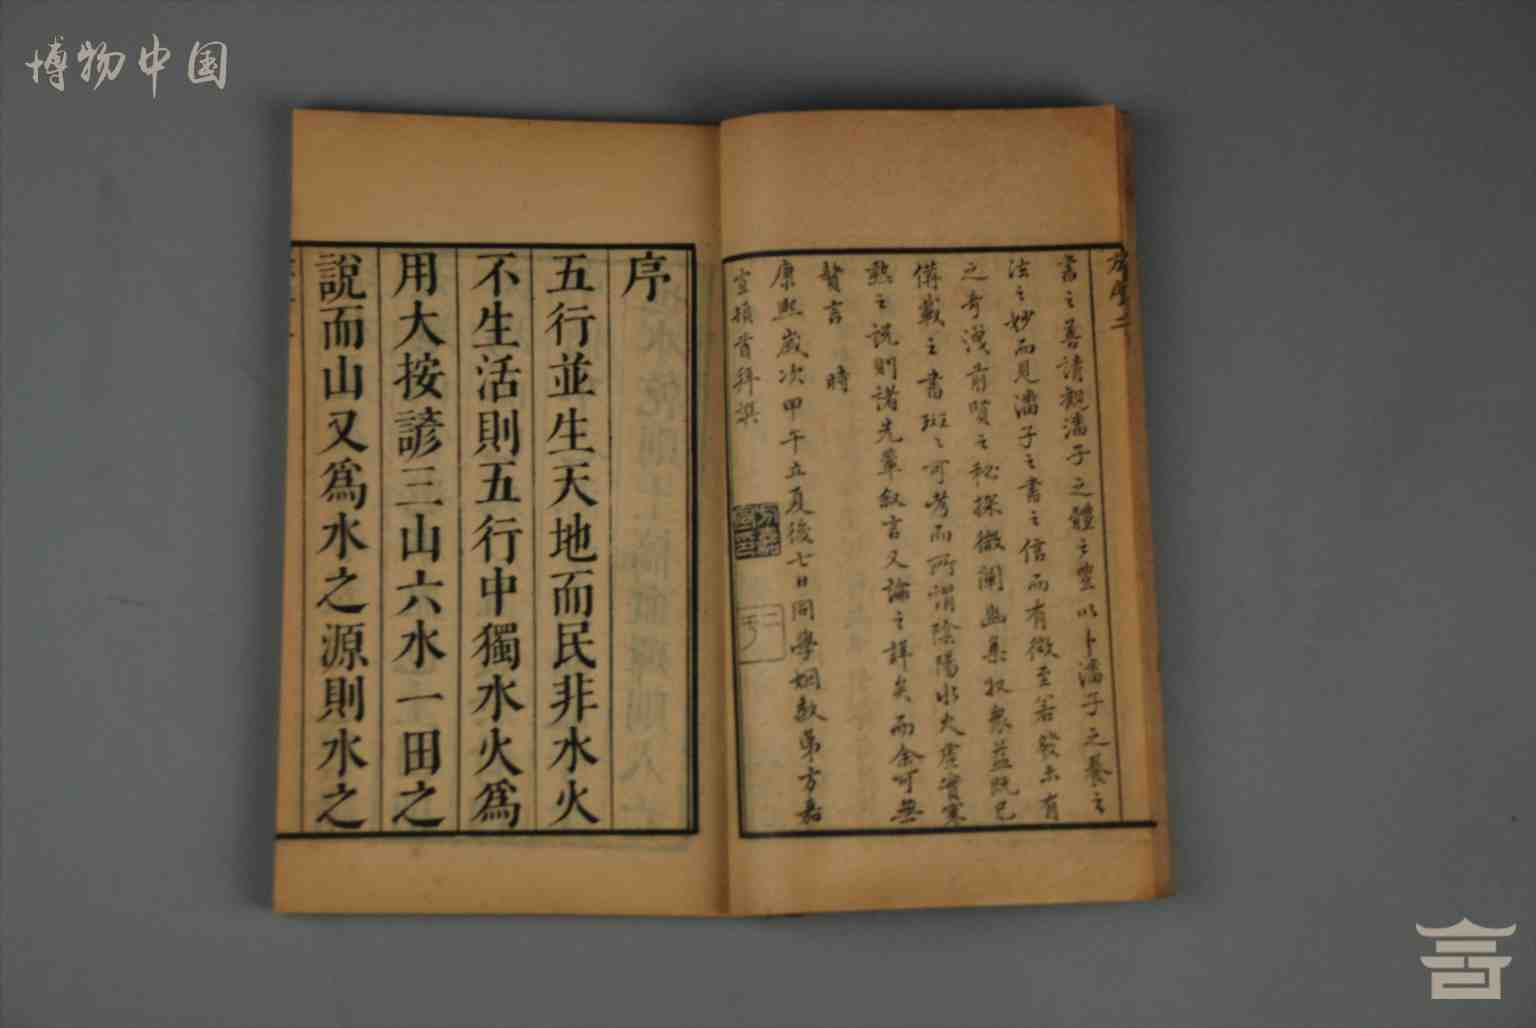 博物中国
書之善請觀潘子之體之豐以卜潘子之養之
法之妙而見潘子之書之信而有徵至若發未有
之奇洩前賢之秘探微闡幽集狐衆益既已
備載之書班之可考而所謂陰陽水火虛實寒
熱之說則諸先輩叙言又論之詳矣而余可無
贅言
時
康熙歲次甲午立夏後七日同學姻教弟方嘉
宣頓首拜撰
序
五行並生天地而民非水火
不生活則五行中獨水火為
用大按諺三山六水一田之
說而山又為水之源則水之